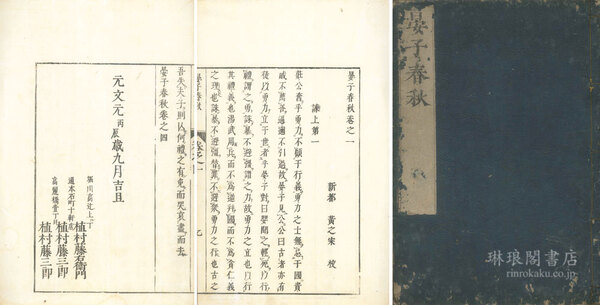 晏子春秋
晏子春秋卷之一
諫上第一
新都 黃之寀 校
莊公奮乎勇力不顧于行義勇力之士無忌于國貴
戚不薦善逼邇不引過故晏子見公公曰古者亦有
徒以勇力立于世者乎晏子對曰嬰聞之輕死以行
禮謂之勇誅暴不避彊謂之力故勇力之立也以行
其禮義也湯武用兵而不為逆并國而不為貪仁義
之理也誅暴不避彊替罪不避眾勇力之行也古之
晏子春秋
吾失夫子則亡何禮之有免而哭哀盡而去
晏子春秋卷之四
元文元丙辰歲九月吉旦
堀川高辻上ル丁
植村藤右衛門
通本石町十軒店
植村藤三郎
高麗橋壹丁目
植村藤三郎
琳琅閣書店
rinrokaku.co.jp